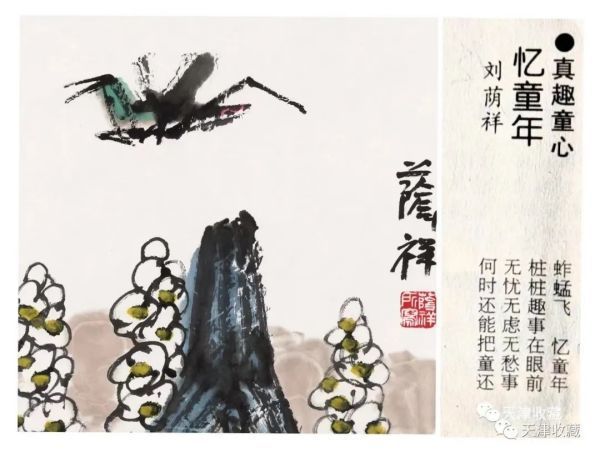 ●真趣童心
忆童年
刘荫祥
蚱蜢飞　忆童年
桩桩趣事在眼前
无忧无虑无愁事
何时还能把童还
蔭祥
天津收藏
天津收藏